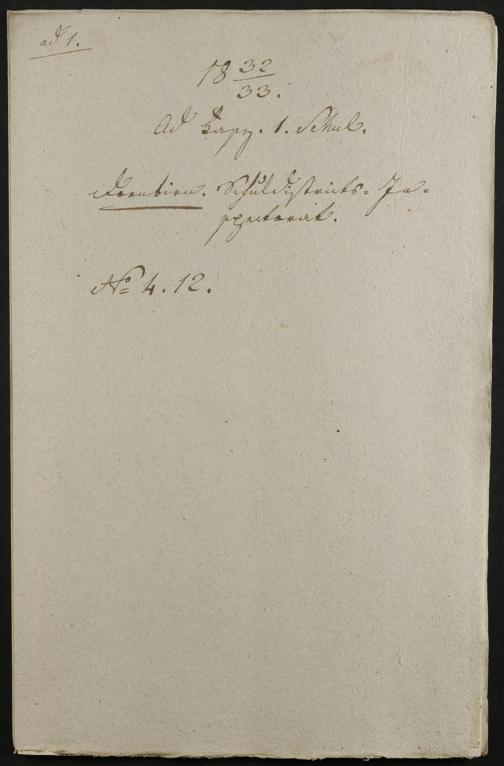 ad 1.
18 32
33.
Ad Fasz. 1. Schul.
Dornbirn. Schuldistricts-In-
spectorat.
No 4. 12.